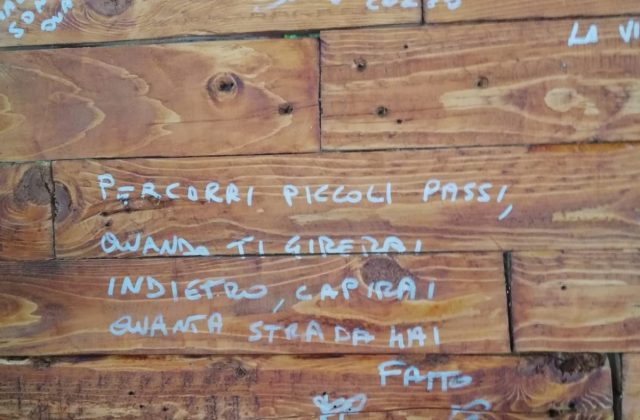 LA VI
PERCORRI PICCOLI PASSI,
QUANDO TI GIRERAI
INDIETRO, CAPIRAI
QUANTA STRADA HAI
FATTO